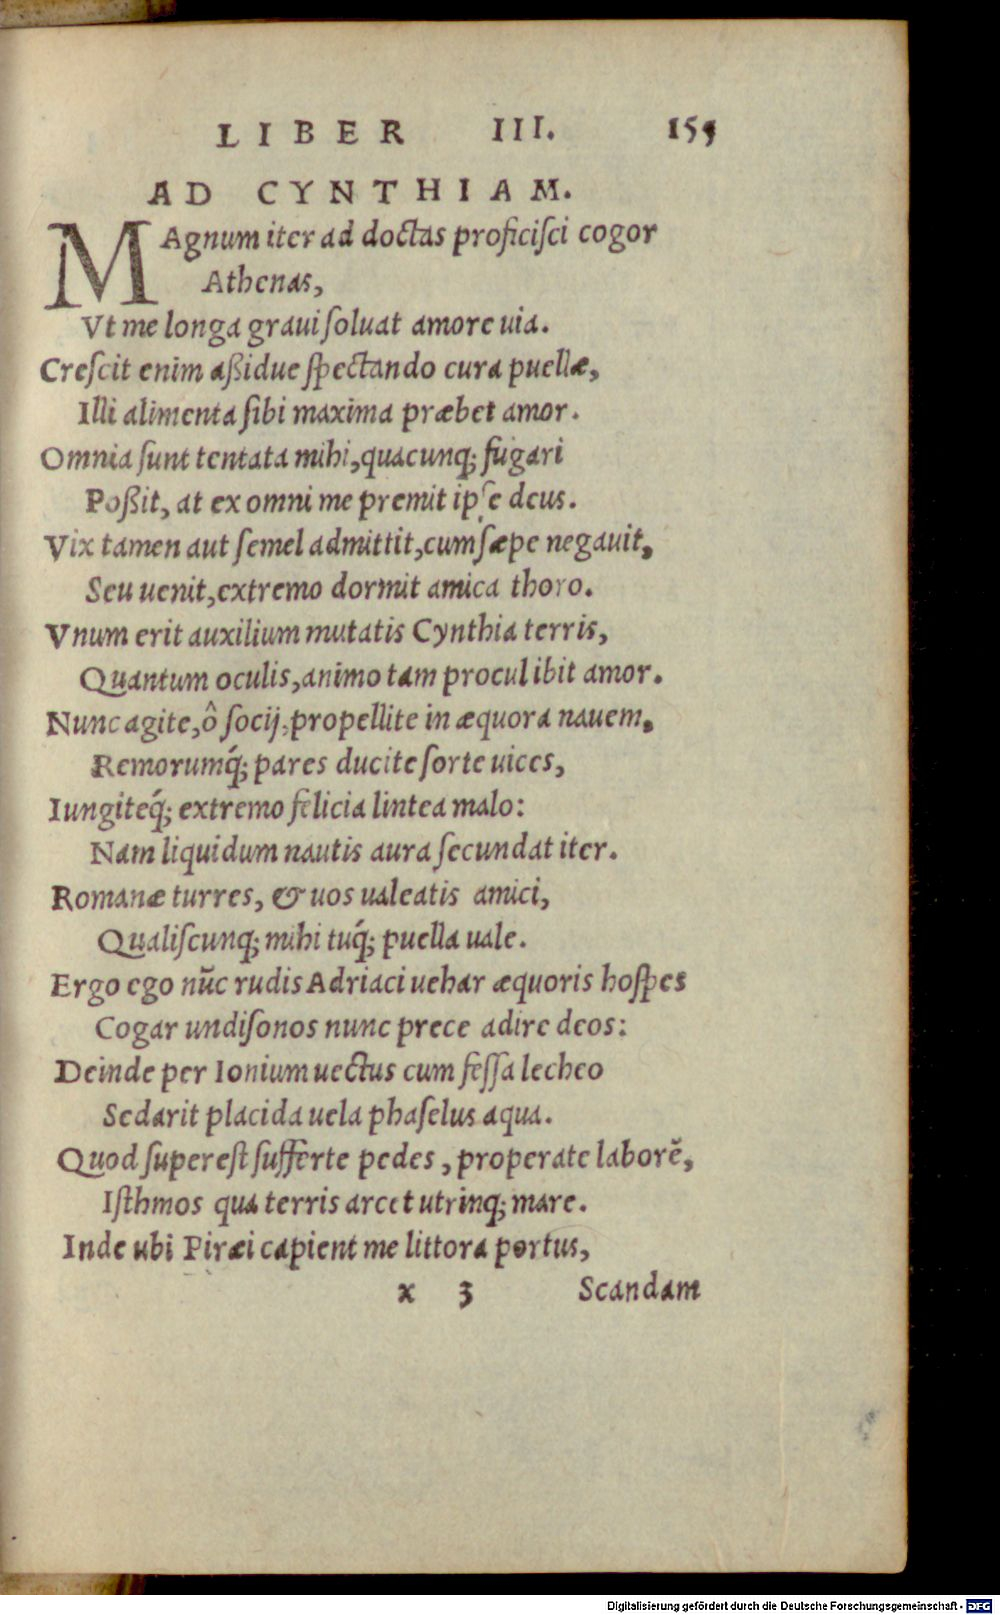 LIBER III. 155
AD CYNTHIAM.
MAgnum iter ad doctas proficiſci cogor
Athenas,
Vt me longa graui ſoluat amore uia.
Creſcit enim aßidue ſpectando cura puellæ,
Illi alimenta ſibi maxima præbet amor.
Omnia ſunt tentata mihi, quacunq; fugari
Poßit, at ex omni me premit ipſe deus.
Vix tamen aut ſemel admittit, cum ſæpe negauit,
Seu uenit, extremo dormit amica thoro.
Vnum erit auxilium mutatis Cynthia terris,
Quantum oculis, animo tam procul ibit amor.
Nunc agite, ô ſocij, propellite in æquora nauem,
Remorumq́; pares ducite ſorte uices,
Iungiteq́; extremo felicia lintea malo:
Nam liquidum nautis aura ſecundat iter.
Romanæ turres, & uos ualeatis amici,
Qualiſcunq; mihi tuq́; puella uale.
Ergo ego nūc rudis Adriaci uehar æquoris hoſpes
Cogar undiſonos nunc prece adire deos:
Deinde per Ionium uectus cum feſſa lecheo
Sedarit placida uela phaſelus aqua.
Quod ſupereſt ſufferte pedes, properate laborē,
Iſthmos qua terris arcet utrinq; mare.
Inde ubi Piræi capient me littora portus,
x 3 Scandam
Digitalisierung gefördert durch die Deutsche Forschungsgemeinschaft - DFG